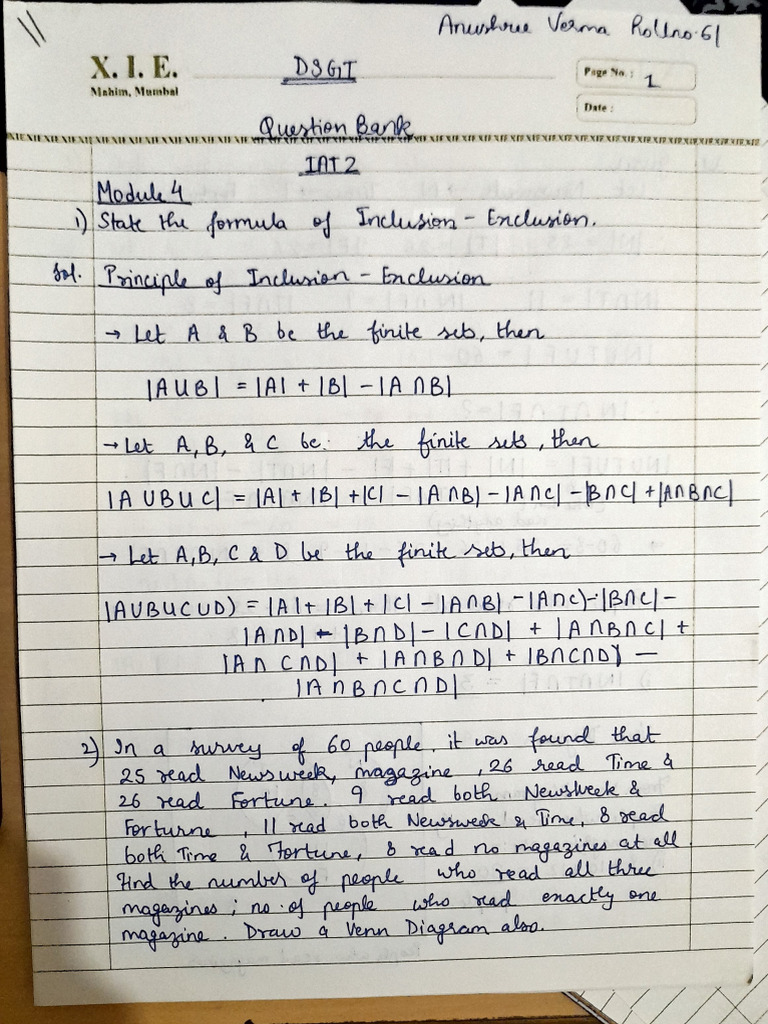 Anushree Verma Rollno.61
X. I. E.
Mahim, Mumbai
DSGT
Page No.: 1
Date :
Question Bank
IAT 2
Module 4
1) State the formula of Inclusion - Exclusion.
Sol. Principle of Inclusion - Exclusion
→ Let A & B be the finite sets, then
|A∪B| = |A| + |B| - |A∩B|
→ Let A, B, & C be the finite sets, then
|A∪B∪C| = |A| + |B| + |C| - |A∩B| - |A∩C| - |B∩C| + |A∩B∩C|
→ Let A, B, C & D be the finite sets, then
|A∪B∪C∪D) = |A| + |B| + |C| - |A∩B| - |A∩C) - |B∩C| -
|A∩D| - |B∩D| - |C∩D| + |A∩B∩C| +
|A∩C∩D| + |A∩B∩D| + |B∩C∩D| -
|A∩B∩C∩D|
2) In a survey of 60 people, it was found that
25 read Newsweek, magazine, 26 read Time &
26 read Fortune. 9 read both Newsweek &
Forturne, 11 read both Newsweek & Time, 8 read
both Time & Fortune, 8 read no magazines at all
Find the number of people who read all three
magazines; no. of people who read exactly one
magazine. Draw a Venn Diagram also.